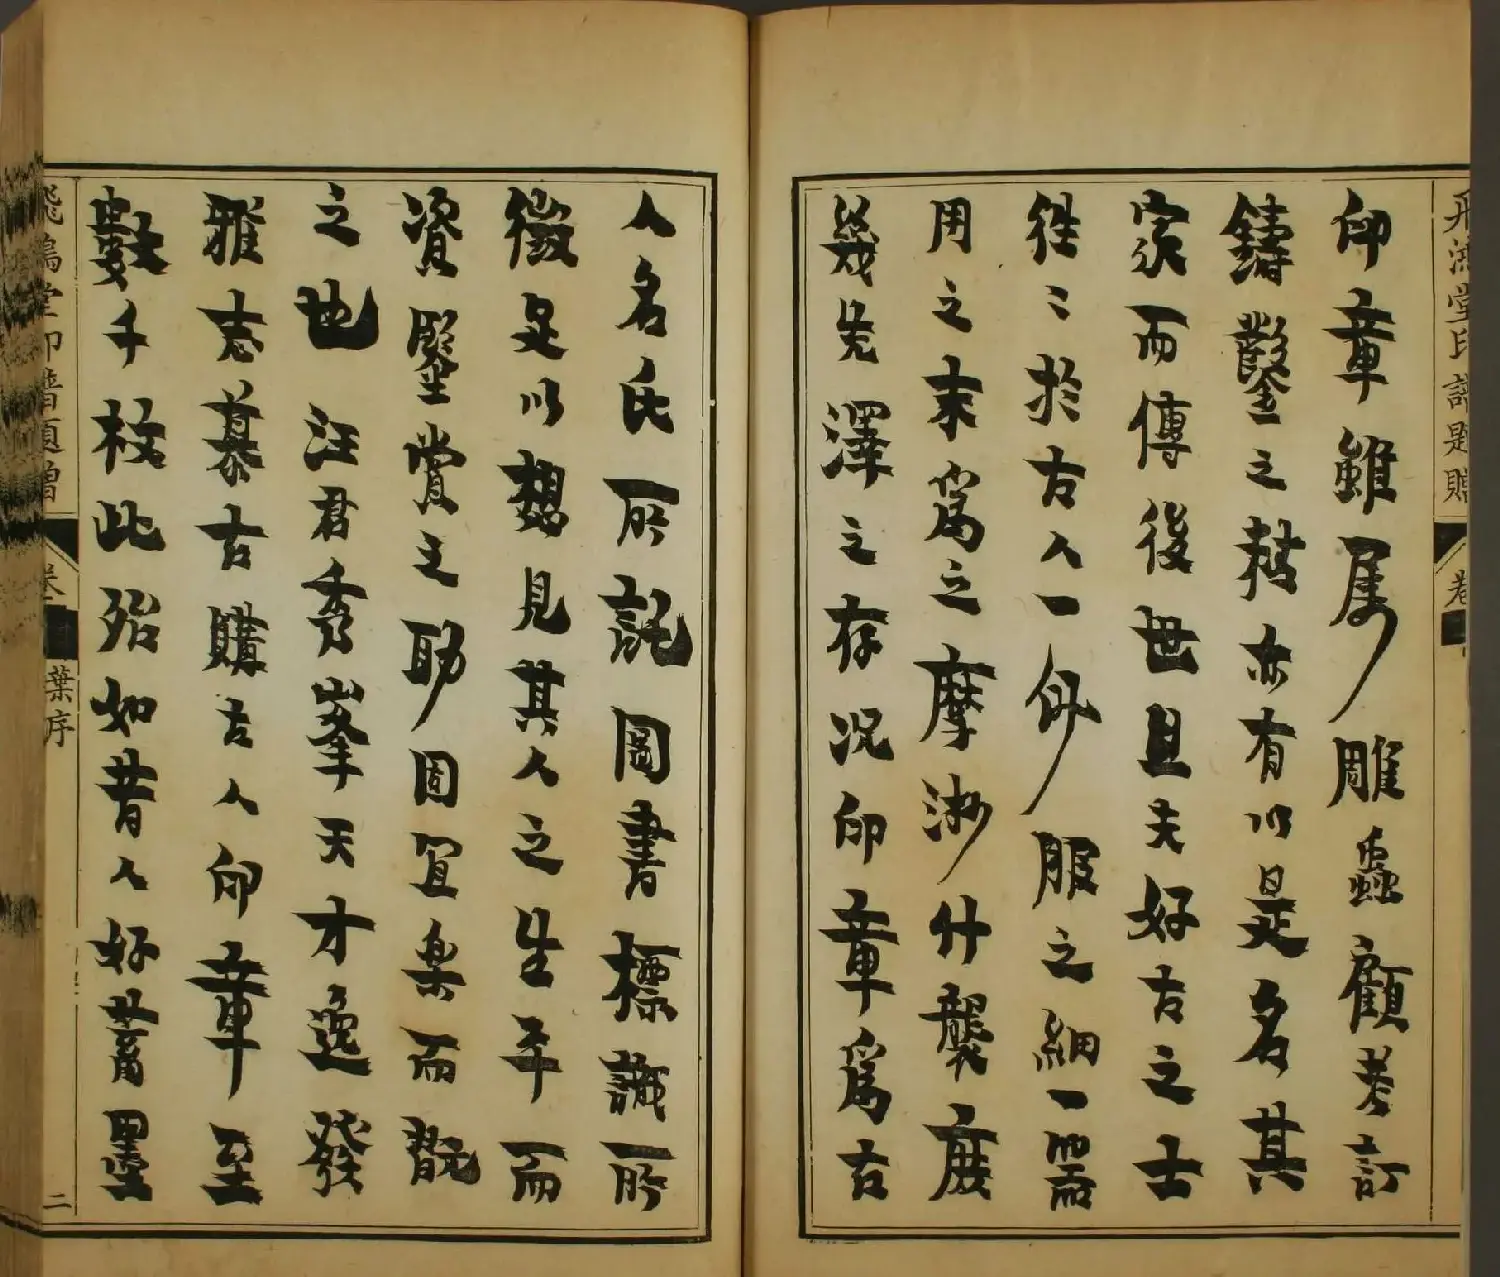 飛鴻堂印譜題贈 卷
印章雖屬雕蟲顧考訂
鑄鑿之亦有以是名其
家而傳後世且夫好古之士
徃〻於古人一服之細一器
用之末爲之摩挲什襲庶
幾先澤之存况印章爲古
人名氏所託圖書標識所
徵足以想見其人之生平而
資鑒賞之助固宜樂而翫
之也 汪君秀峯天才逸發
雅志慕古購古人印章至
數千枚此殆如昔人好蓄墨
飛鴻堂印譜題贈 卷 葉序 二